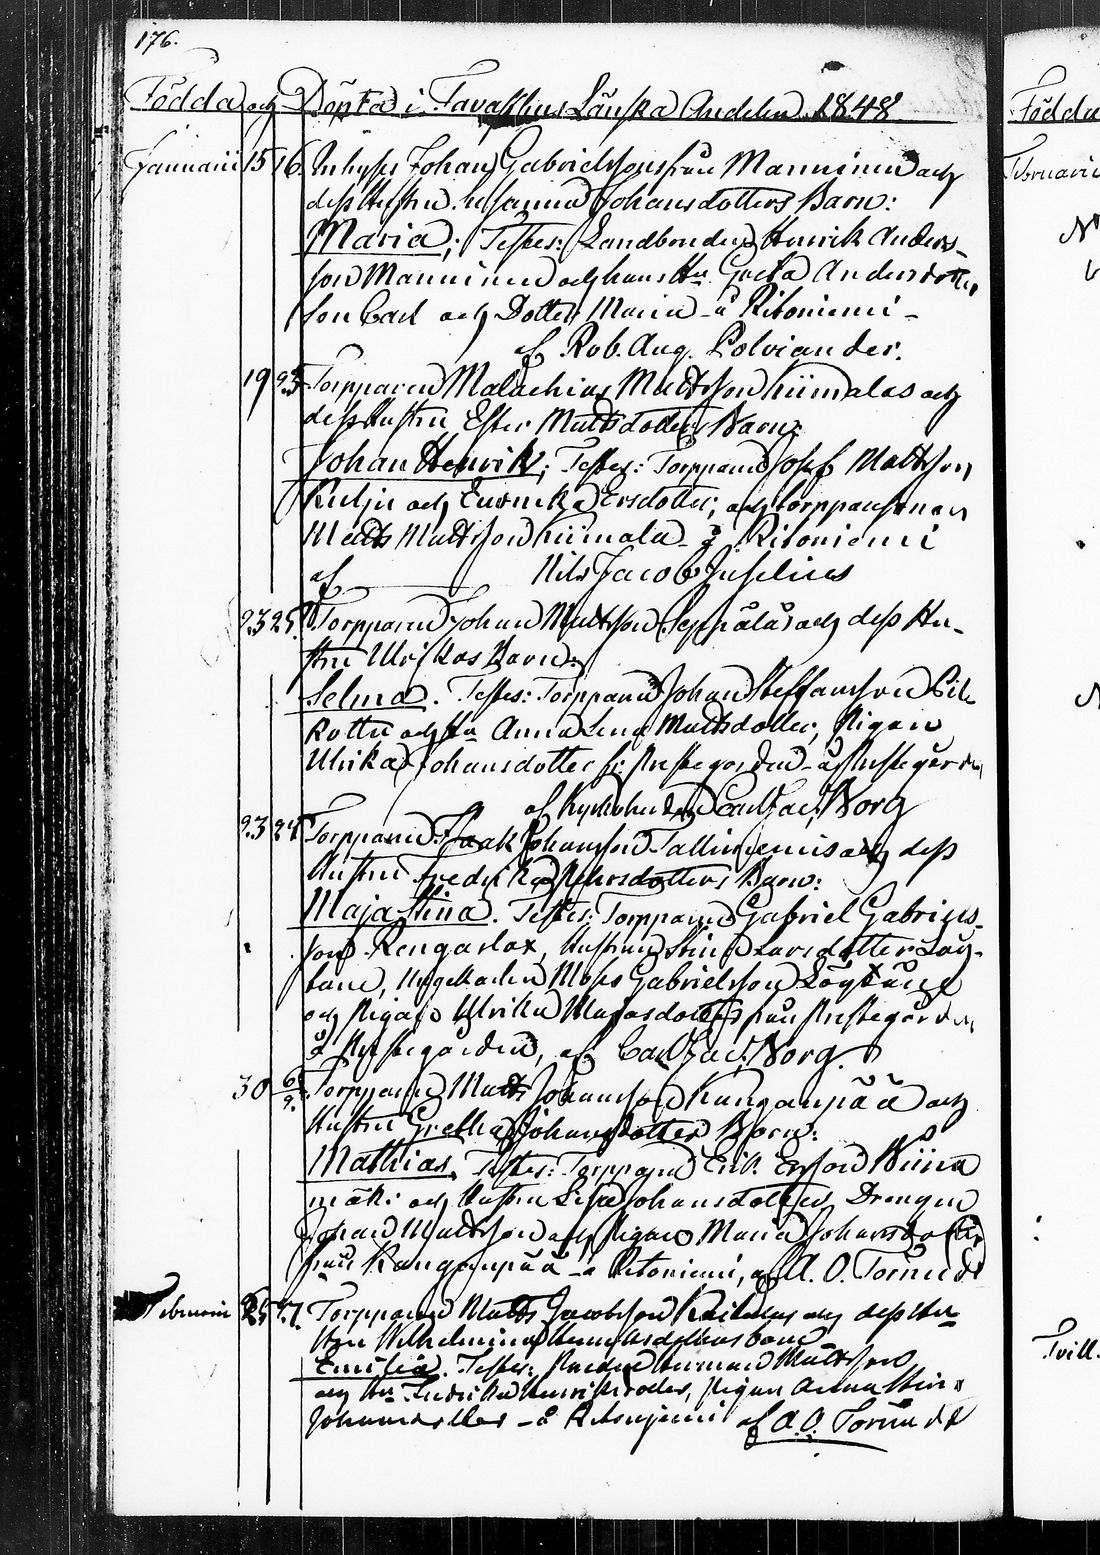 176.
Födda och Döpta i Tavasthus Länska Andelen 1848
Januarii 15 16. Inhyses Johan Gabrielssons från Manninen och
dess Hustru Susanna Johansdotters Barn:
Maria; Testes: Landbonden Henrik Anders-
son Manninen och hans Hu Greta Andersdotter
Son Carl och Dotter Maria å Ritoniemi -
af Rob. Aug. Polviander.
19 23 Torpparen Malachias Mattsson Kiimalas och
dess Hustru Ester Mattsdotters Barn:
Johan Henrik; Testes: Torpparen Josef Mattsson
och Ersdotter; och torpparsonen
Matts Mattsson Kiimala å Ritoniemi
af Nils Jacob Juselius
23 25. Torpparen Johan Mattsson Seppäläs och dess Hu-
stru Ulrikas Barn:
Selma. Testes: Torpparen Johan Steffansson
och Hu Anna Lena Mattsdotter, Pigan
Ulrika Johansdotter fr: Prestegården å Prestegården
af Kyrkoherden Carl Jac. Borg
23 24 Torpparen Isaak Johansson Tallinienis och dess
Hustru Fredrika Pehrsdotters Barn:
Maja Stina. Testes: Torpparen Gabriel Gabriels-
son Rengaslax, Hustrun Stina Larsdotter Lång-
tane, Ungkarlen Moses Gabrielsson
och Pigan Ulrika från Prestegården
å Prestegården, af Carl Jac. Borg.
30 6/2. Torpparen Matts Johansson Kangaspää och
Hustru Gretha Johansdotters Barn:
Mathias. Testes: Torpparen Erik Ersson Niini
mäki och Hustru Lisa Johansdotter, Drengen
Johan Mattsson och Pigan Maria Johansdotter
från Kangaspää å Ritoniemi, af A. O. Törnudd
Februarii 25 27. Torpparen Matts Jacobsson och dess Hu-
stru Wilhelmina Henriksdotters barn
Emilia. Testes: Herman Mattsson
och Hu Fredrika Henriksdotter, Pigan Anna Stina
Johansdotter - å Ritoniemi af A. O. Törnudd
Födda
Februarii
Tvill.